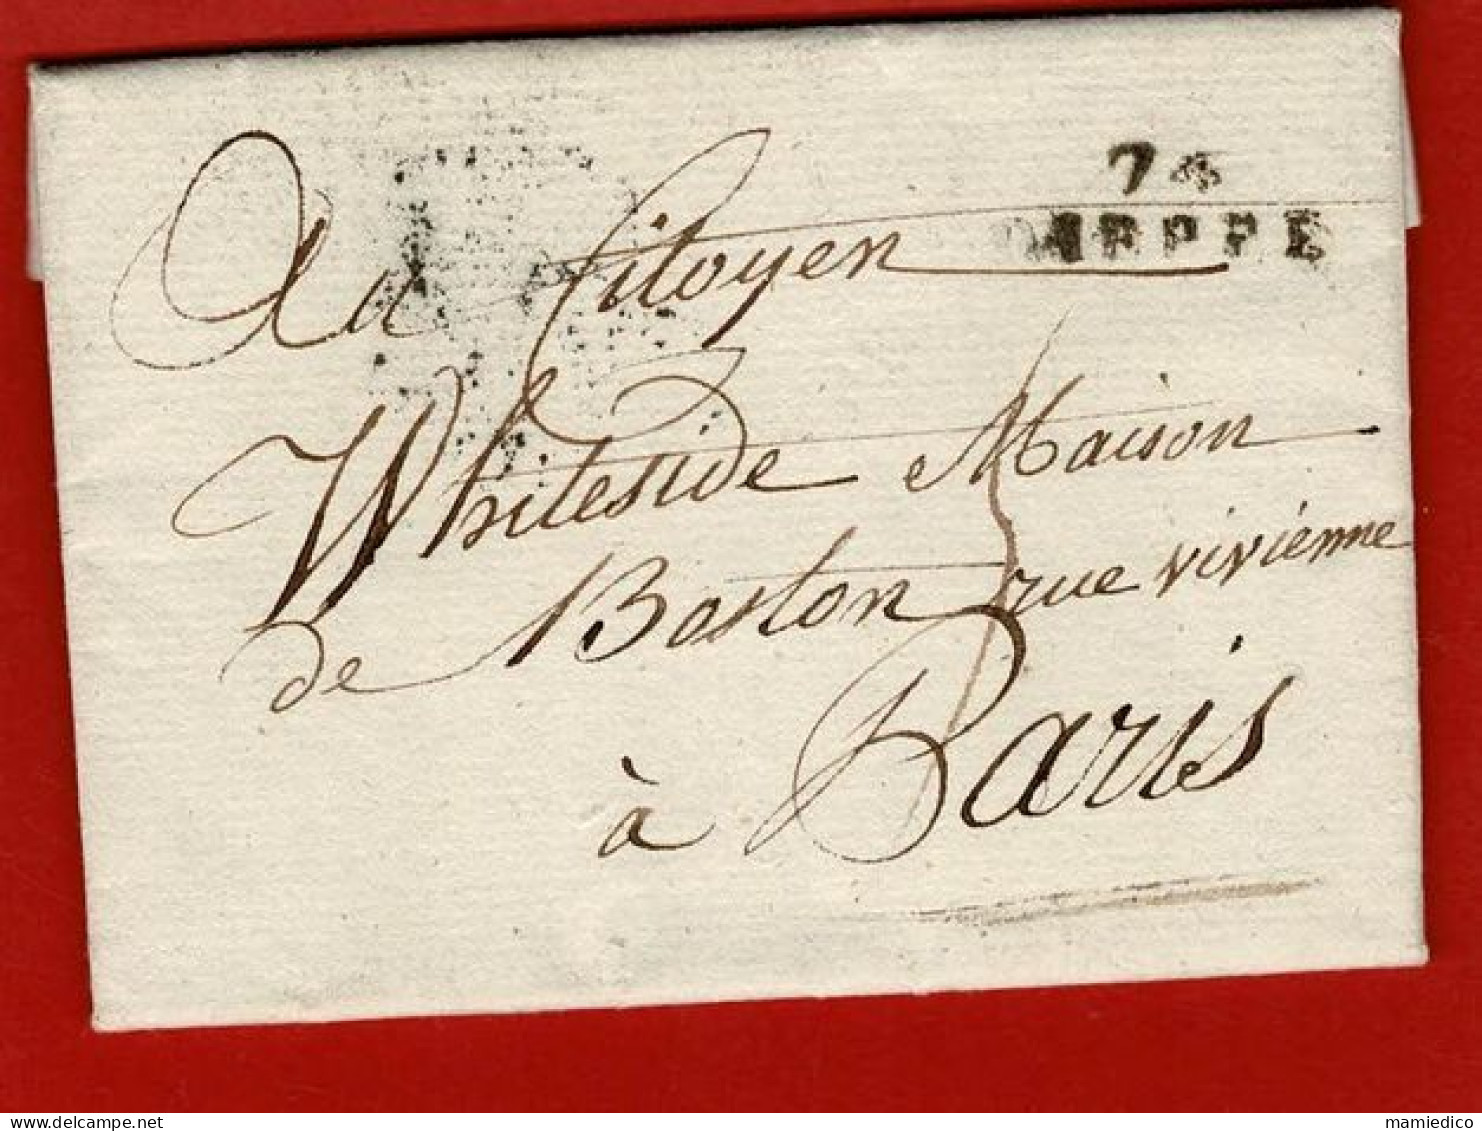 74
DIEPPE
Au Citoyen
Whiteside Maison
de Boston rue vivienne
à Paris
mamiedico